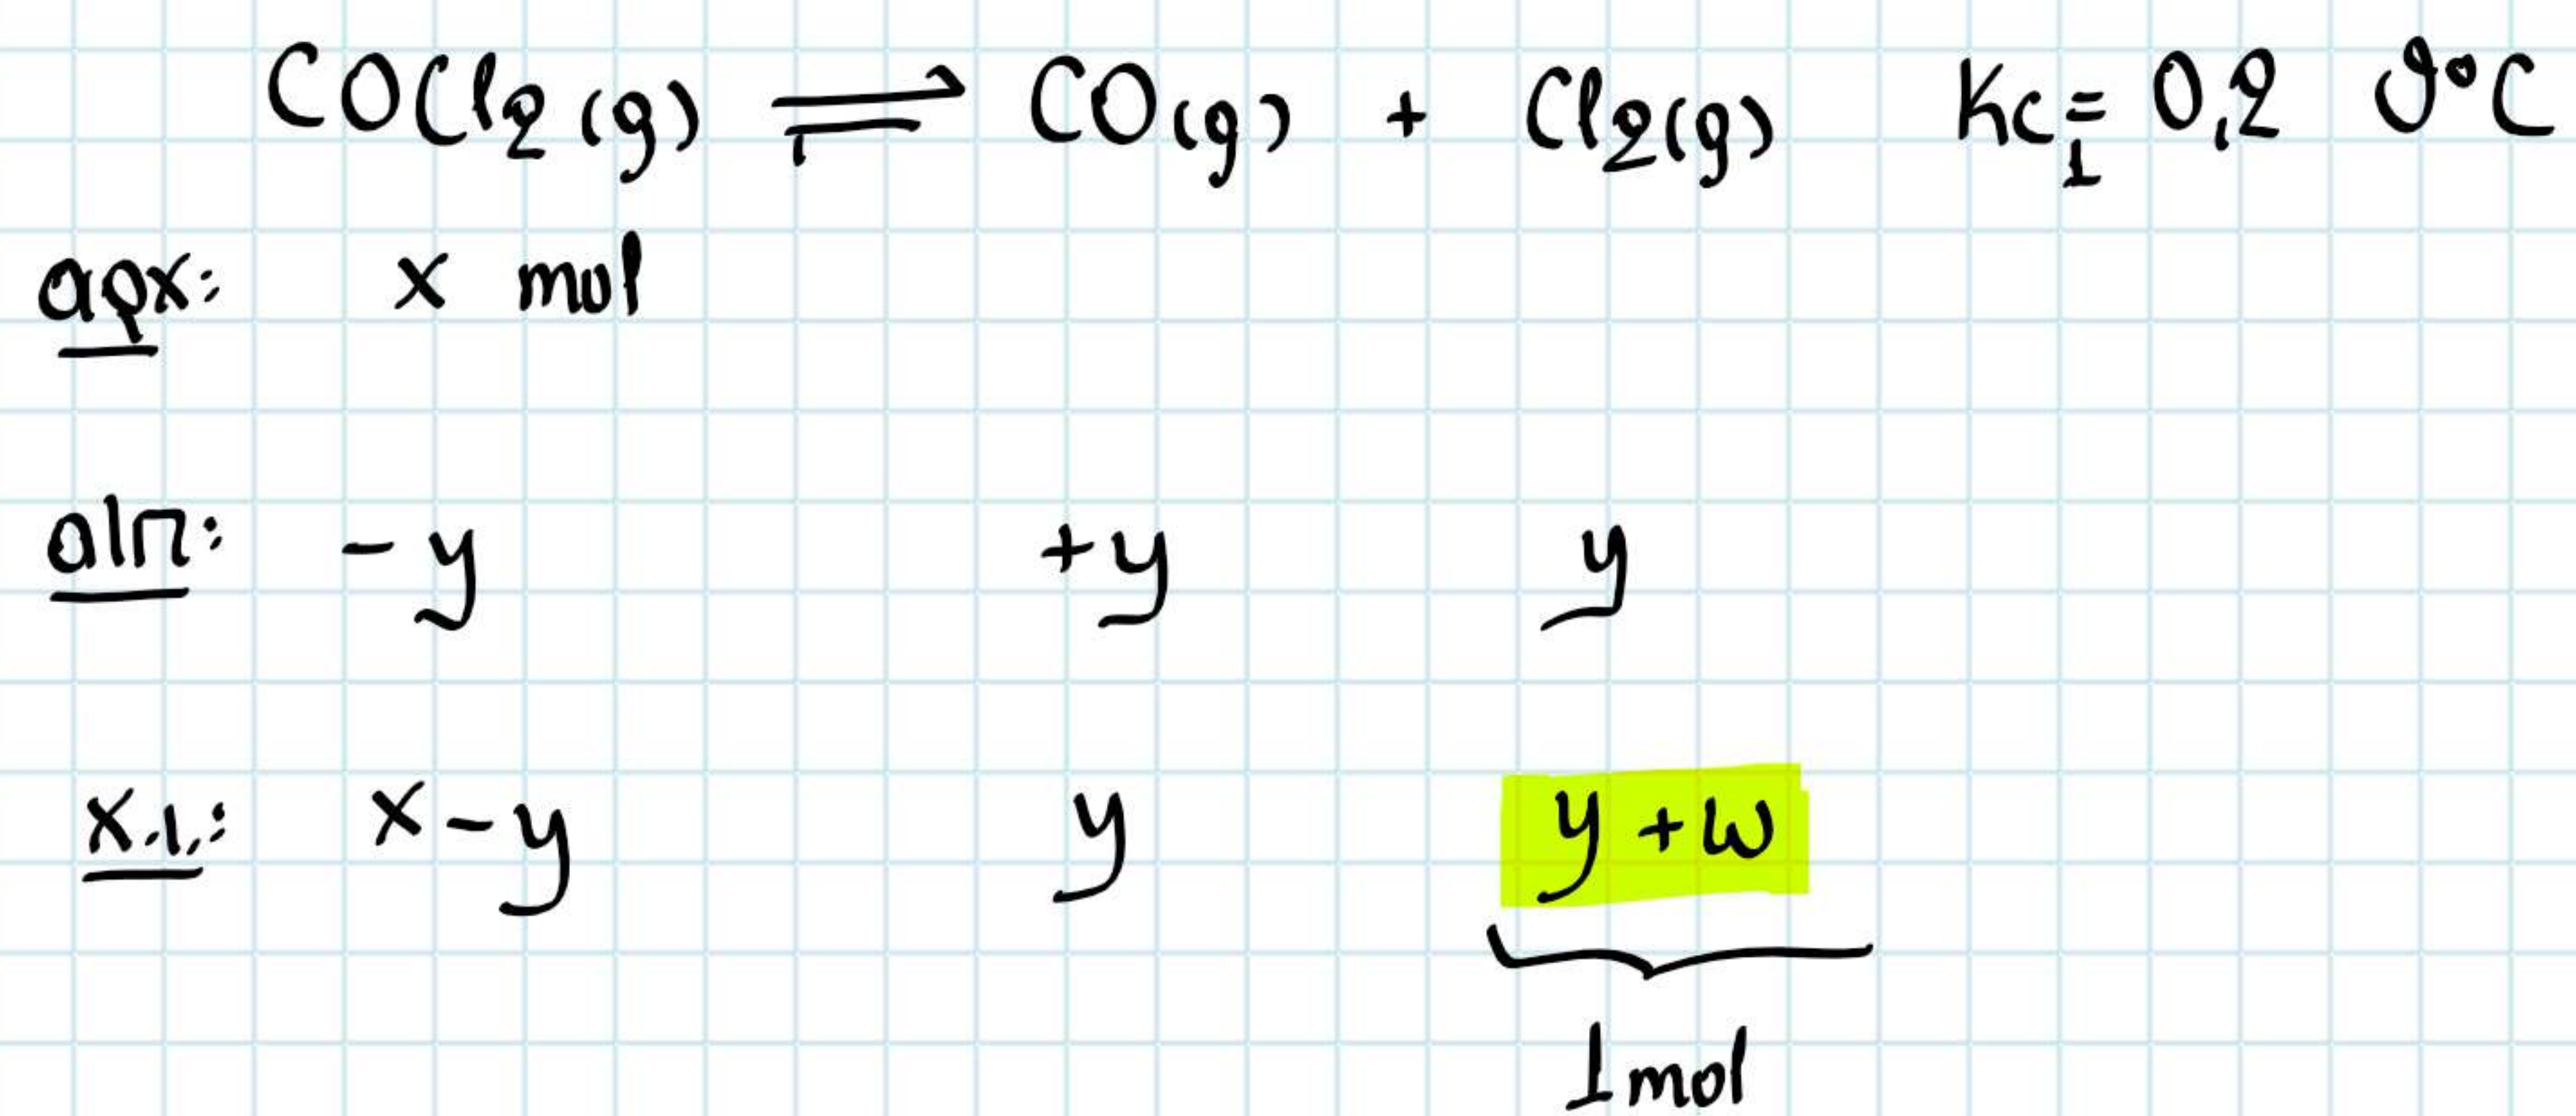 COCl₂(g) ⇌ CO(g) + Cl₂(g) Kc₁ = 0,2 θ°C
αρχ: x mol
α|π: -y +y y
x.ι.: x-y y y+ω
1mol